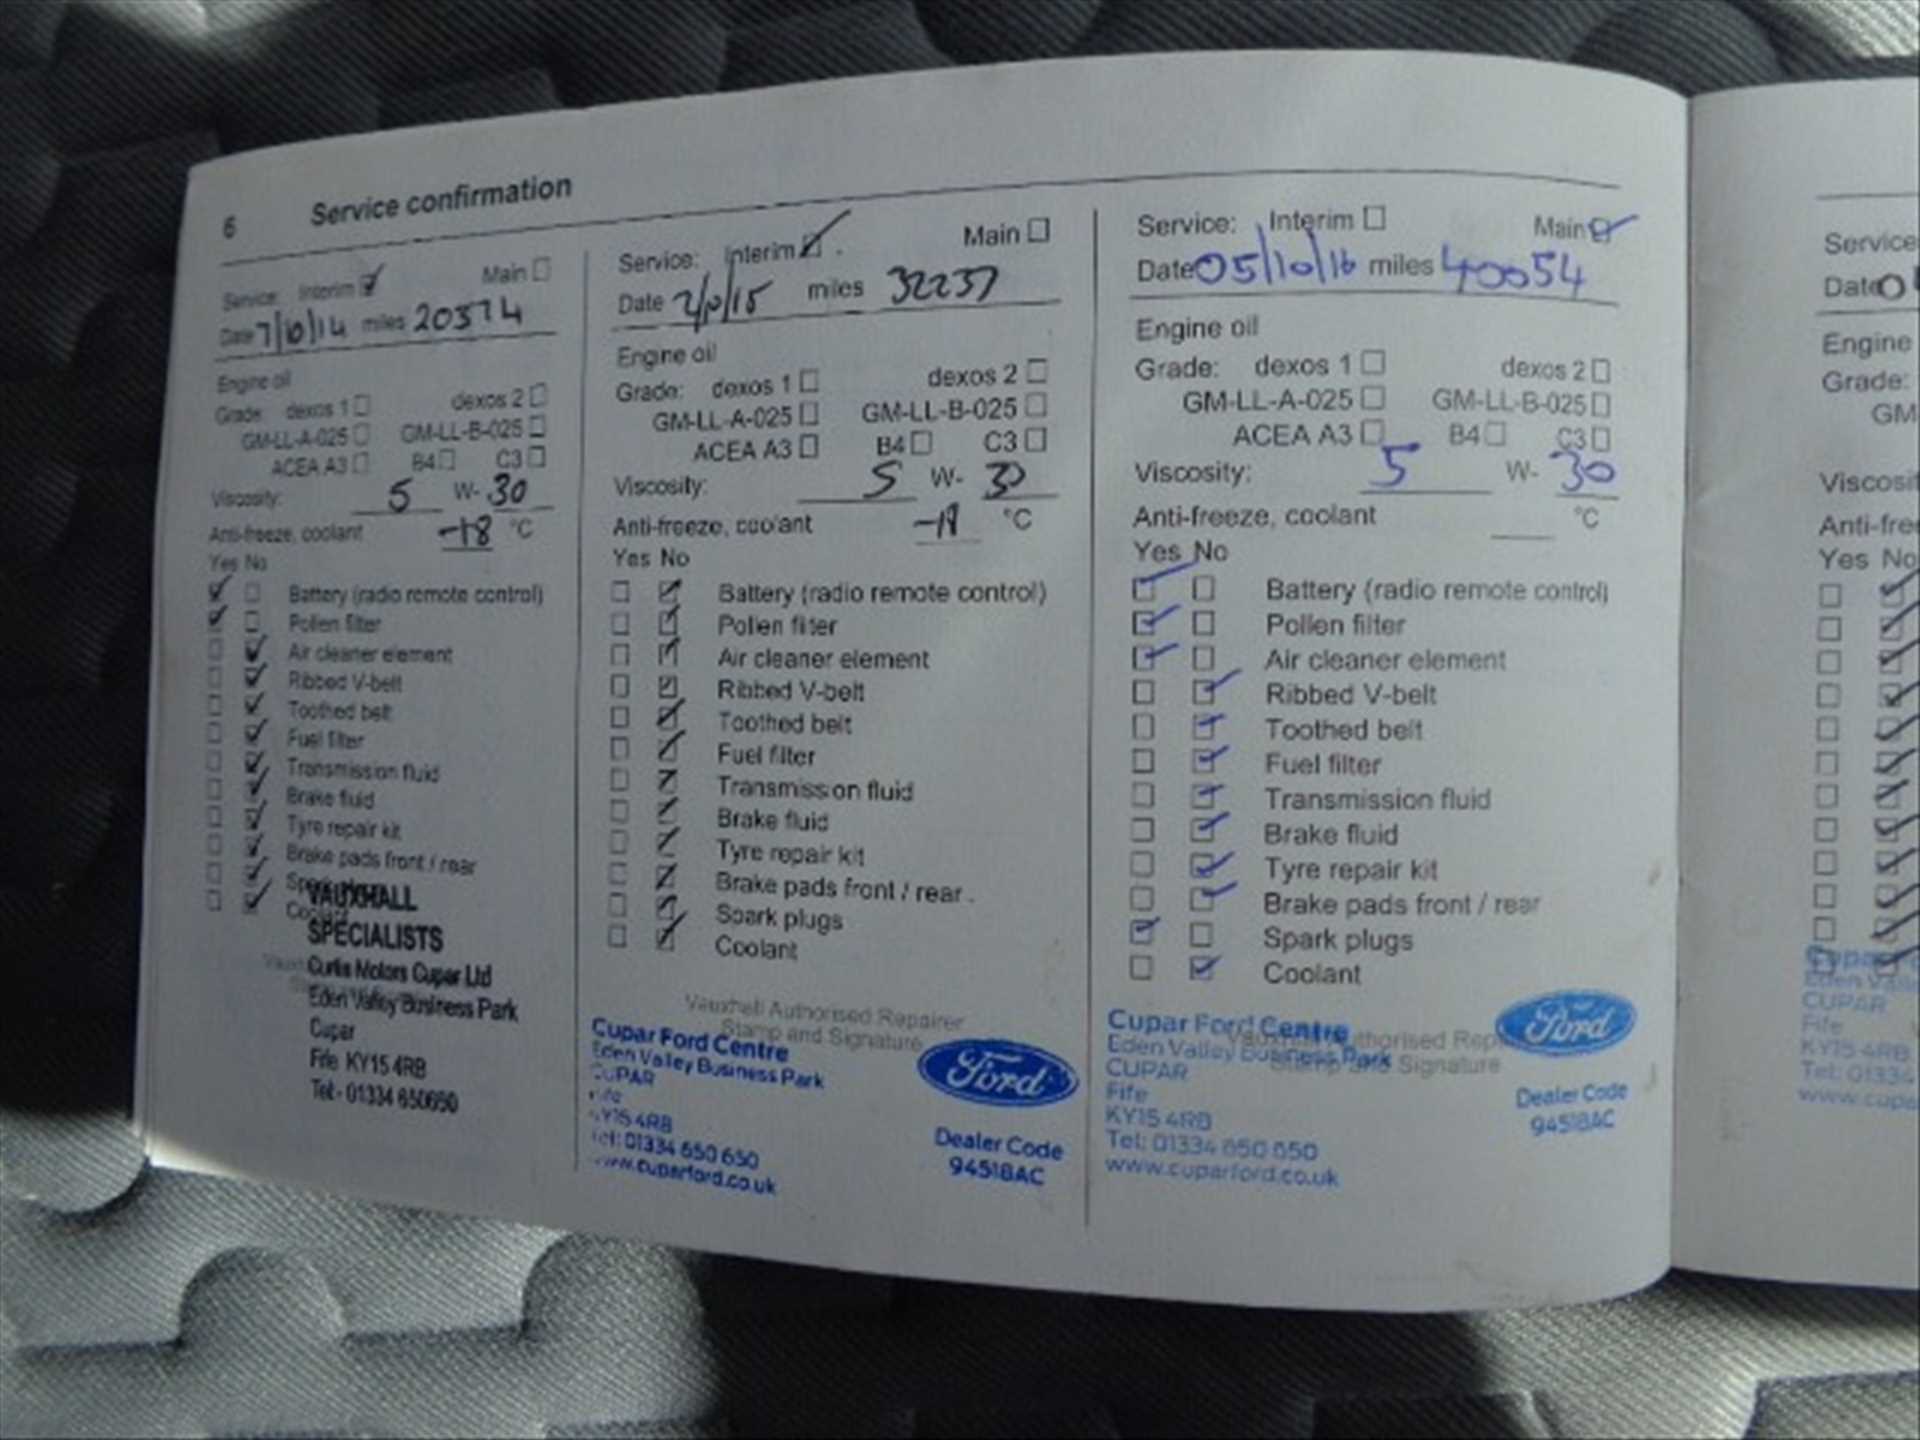 6 Service confirmation
Service: Interim Main
Date 7/10/14 miles 20374
Engine oil
Grade: dexos 1 dexos 2
GM-LL-A-025 GM-LL-B-025
ACEA A3 B4 C3
Viscosity: 5 W- 30
Anti-freeze, coolant -18 °C
Yes No
Battery (radio remote control)
Pollen filter
Air cleaner element
Ribbed V-belt
Toothed belt
Fuel filter
Transmission fluid
Brake fluid
Tyre repair kit
Brake pads front / rear
Spark plugs
Coolant
VAUXHALL
SPECIALISTS
Curtis Motors Cupar Ltd
Eden Valley Business Park
Cupar
Fife KY15 4RB
Tel:- 01334 650650
Service: Interim Main
Date 2/10/15 miles 32237
Engine oil
Grade: dexos 1 dexos 2
GM-LL-A-025 GM-LL-B-025
ACEA A3 B4 C3
Viscosity: 5 W- 30
Anti-freeze, coolant °C
Yes No
Battery (radio remote control)
Pollen filter
Air cleaner element
Ribbed V-belt
Toothed belt
Fuel filter
Transmission fluid
Brake fluid
Tyre repair kit
Brake pads front / rear
Spark plugs
Coolant
Vauxhall Authorised Repairer
Stamp and Signature
Cupar Ford Centre
Eden Valley Business Park
CUPAR
Fife
KY15 4RB
Tel: 01334 650 650
www.cuparford.co.uk
Ford
Dealer Code
94518AC
Service: Interim Main
Date 05/10/16 miles 40054
Engine oil
Grade: dexos 1 dexos 2
GM-LL-A-025 GM-LL-B-025
ACEA A3 B4 C3
Viscosity: 5 W- 30
Anti-freeze, coolant °C
Yes No
Battery (radio remote control)
Pollen filter
Air cleaner element
Ribbed V-belt
Toothed belt
Fuel filter
Transmission fluid
Brake fluid
Tyre repair kit
Brake pads front / rear
Spark plugs
Coolant
Vauxhall Authorised Repairer
Stamp and Signature
Cupar Ford Centre
Eden Valley Business Park
CUPAR
Fife
KY15 4RB
Tel: 01334 650 650
www.cuparford.co.uk
Ford
Dealer Code
94518AC
Service
Date
Engine
Grade:
GM
Viscosit
Anti-free
Yes No
Cupar
Eden Valley
CUPAR
Fife
KY15 4RB
Tel: 01334
www.cupa